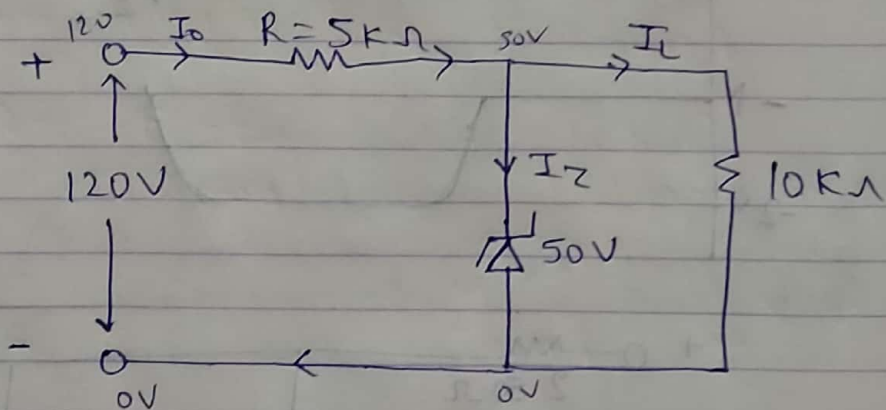 120 I₀ R = 5KΩ 50V I_L
+
120V I_Z 10KΩ
50V
-
0V 0V